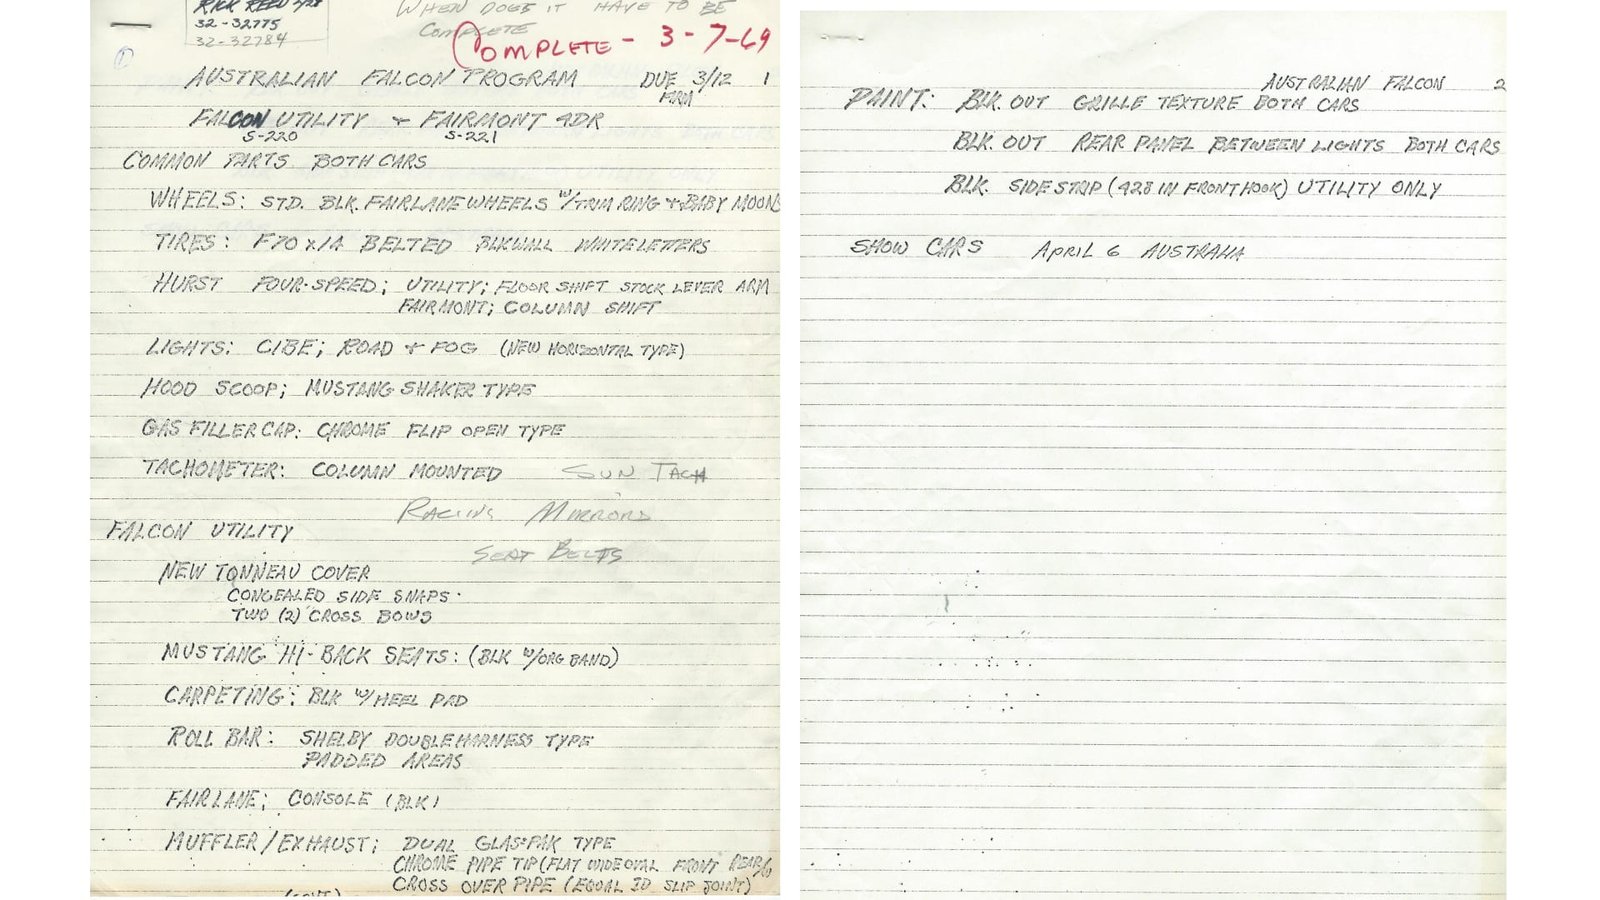 RICK REED 3/28
32-32775
32-32784
WHEN DOES IT HAVE TO BE
COMPLETE
COMPLETE - 3-7-69
1
AUSTRALIAN FALCON PROGRAM DUE 3/12 1
FIRM
FALCON UTILITY + FAIRMONT 4DR
S-220 S-221
COMMON PARTS BOTH CARS
WHEELS: STD. BLK. FAIRLANE WHEELS W/TRIM RING + BABY MOONS
TIRES: F70 X14 BELTED BLKWALL WHITE LETTERS
HURST FOUR-SPEED; UTILITY; FLOOR SHIFT STOCK LEVER ARM
FAIRMONT; COLUMN SHIFT
LIGHTS: CIBE; ROAD + FOG (NEW HORIZONTAL TYPE)
HOOD SCOOP; MUSTANG SHAKER TYPE
GAS FILLER CAP: CHROME FLIP OPEN TYPE
TACHOMETER: COLUMN MOUNTED SUN TACH
RACING MIRRORS
FALCON UTILITY
SEAT BELTS
NEW TONNEAU COVER
CONCEALED SIDE SNAPS.
TWO (2) CROSS BOWS
MUSTANG HI-BACK SEATS: (BLK W/ORG BAND)
CARPETING: BLK W/HEEL PAD
ROLL BAR: SHELBY DOUBLE HARNESS TYPE
PADDED AREAS
FAIRLANE; CONSOLE (BLK)
MUFFLER/EXHAUST; DUAL GLAS-PAK TYPE
CHROME PIPE TIP (FLAT WIDE OVAL FRONT REAR)
CROSS OVER PIPE (EQUAL ID SLIP JOINT)
(CONT)
AUSTRALIAN FALCON 2
PAINT: BLK. OUT GRILLE TEXTURE BOTH CARS
BLK. OUT REAR PANEL BETWEEN LIGHTS BOTH CARS
BLK. SIDE STRIP (428 IN FRONT HOOK) UTILITY ONLY
SHOW CARS APRIL 6 AUSTRALIA